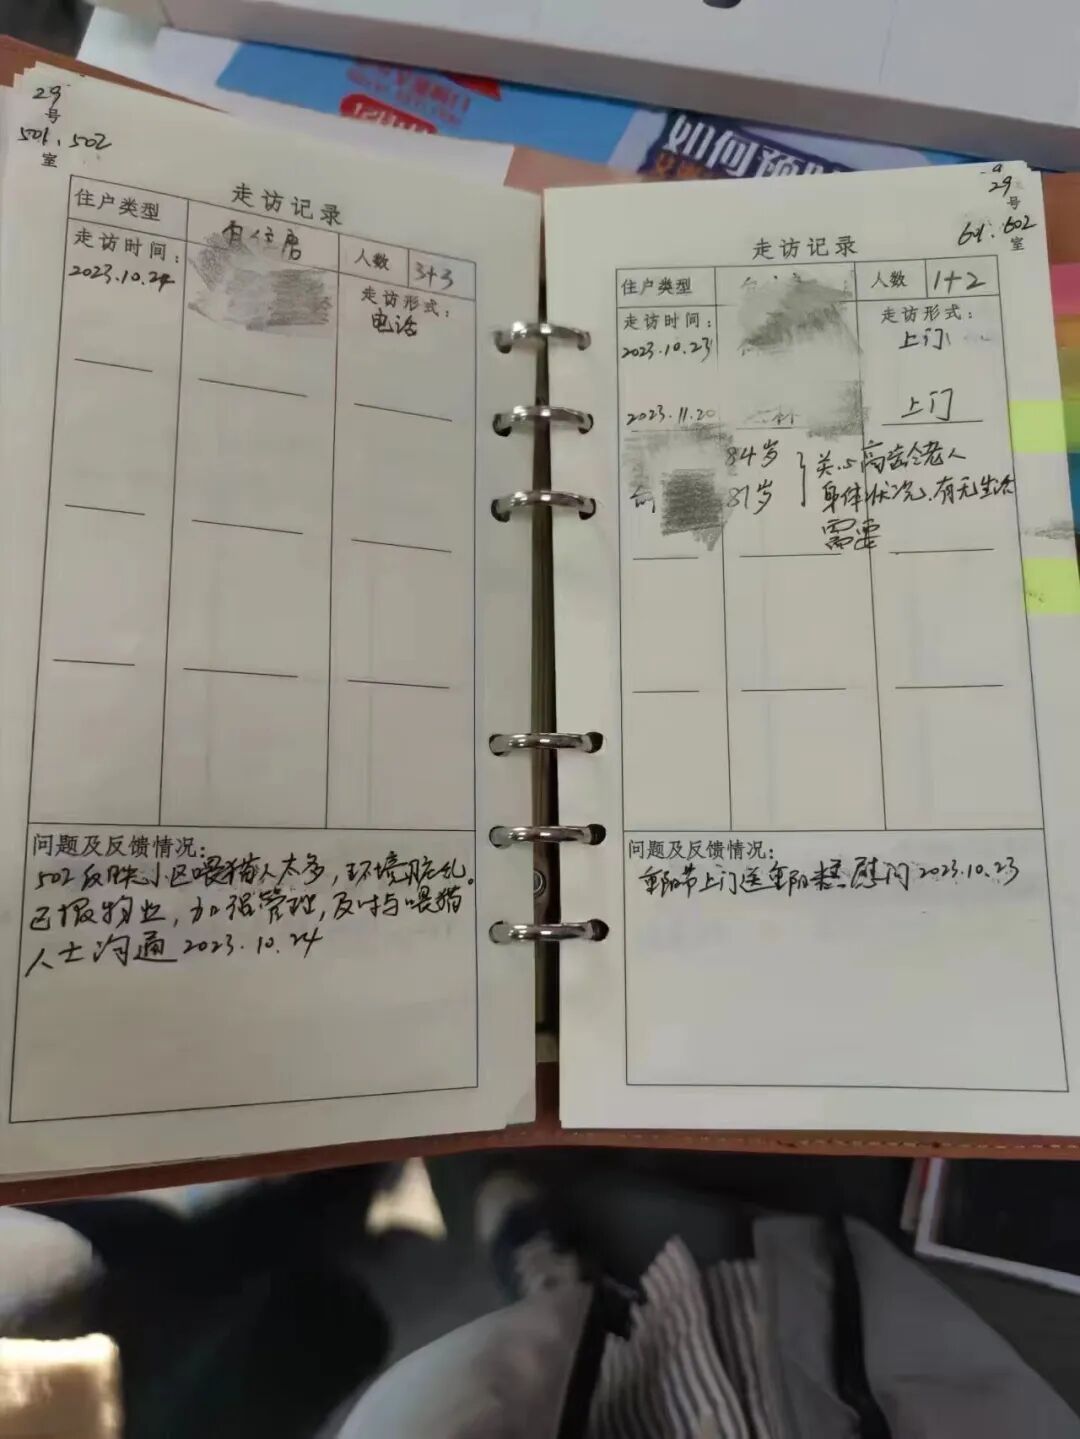 29
号
501、502
室
走访记录
住户类型
自住房
人数
3+3
走访时间：
2023.10.24
走访形式：
电话
问题及反馈情况：
502反映小区喂猫人太多，环境脏乱。
已报物业，加强管理，及时与喂猫
人士沟通 2023.10.24
如何预
29
号
601、602
室
走访记录
住户类型
人数
1+2
走访时间：
2023.10.23
走访形式：
上门
2023.11.20
上门
84岁
81岁
关心高龄老人
身体状况、有无生活
需要
问题及反馈情况：
重阳节上门送重阳糕慰问 2023.10.23